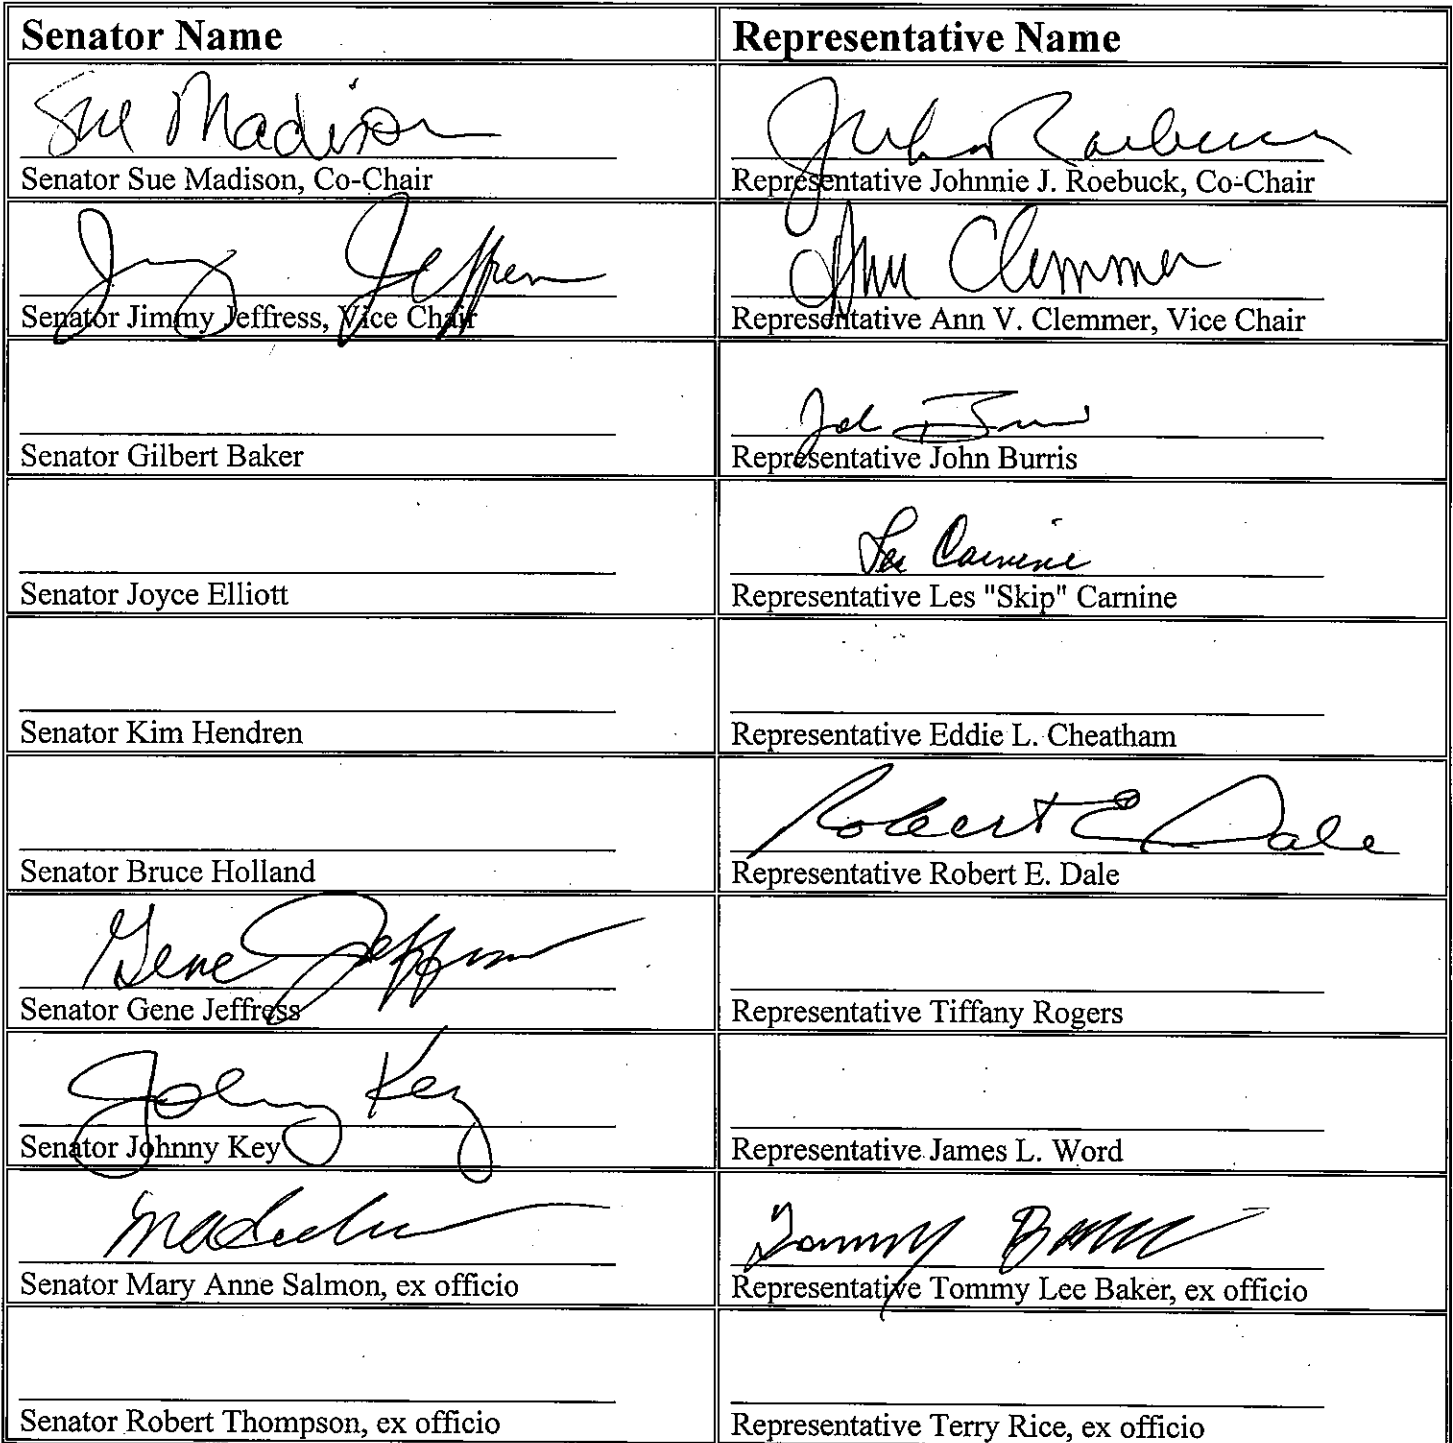 Senator Name
Representative Name
Sue Madison
Senator Sue Madison, Co-Chair
Representative Johnnie J. Roebuck, Co-Chair
Jimmy Jeffress
Senator Jimmy Jeffress, Vice Chair
Ann Clemmer
Representative Ann V. Clemmer, Vice Chair
Senator Gilbert Baker
John Burris
Representative John Burris
Senator Joyce Elliott
Les Carnine
Representative Les "Skip" Carnine
Senator Kim Hendren
Representative Eddie L. Cheatham
Senator Bruce Holland
Robert E Dale
Representative Robert E. Dale
Gene Jeffress
Senator Gene Jeffress
Representative Tiffany Rogers
Johnny Key
Senator Johnny Key
Representative James L. Word
Senator Mary Anne Salmon, ex officio
Tommy Baker
Representative Tommy Lee Baker, ex officio
Senator Robert Thompson, ex officio
Representative Terry Rice, ex officio